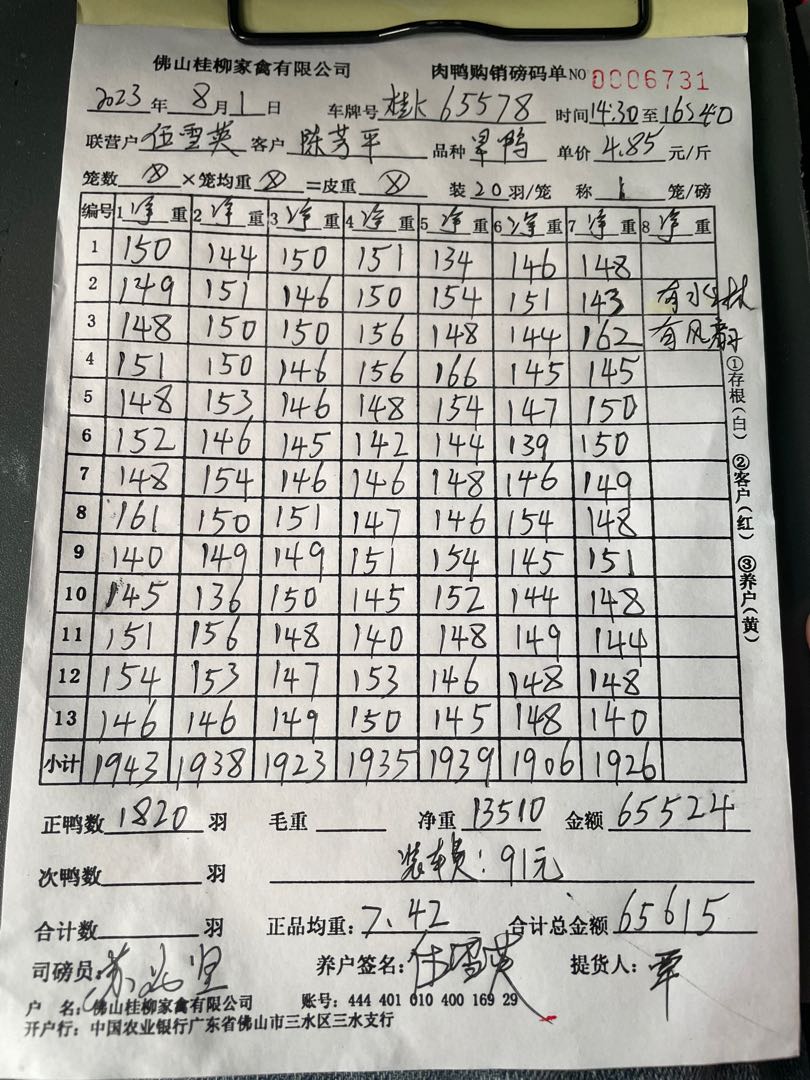 佛山桂柳家禽有限公司 肉鸭购销磅码单 NO 0006731
2023年8月1日 车牌号 桂K65578 时间14:30至16:40
联营户 伍雪英 客户 陈芳平 品种 旱鸭 单价 4.85 元/斤
笼数 ⊗ ×笼均重 ⊗ =皮重 ⊗ 装20羽/笼 称 1 笼/磅
编号 1净重 2净重 3净重 4净重 5净重 6净重 7净重 8净重
1 150 144 150 151 134 146 148
2 149 151 146 150 154 151 143 有水
3 148 150 150 156 148 144 162 有风
4 151 150 146 156 166 145 145
5 148 153 146 148 154 147 150
6 152 146 145 142 144 139 150
7 148 154 146 146 148 146 149
8 161 150 151 147 146 154 148
9 140 149 149 151 154 145 151
10 145 136 150 145 152 144 148
11 151 156 148 140 148 149 144
12 154 153 147 153 146 148 148
13 146 146 149 150 145 148 140
小计 1943 1938 1923 1935 1939 1906 1926
①存根(白) ②客户(红) ③养户(黄)
正鸭数 1820 羽 毛重 净重 13510 金额 65524
次鸭数 羽 装车费：91元
合计数 羽 正品均重：7.42 合计总金额 65615
司磅员： 养户签名：伍雪英 提货人：覃
户 名：佛山桂柳家禽有限公司 账号：444 401 010 400 169 29
开户行：中国农业银行广东省佛山市三水区三水支行